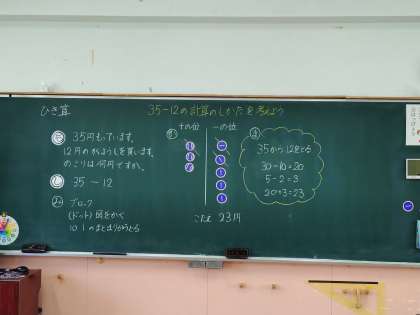 ひき算
35-12の計算のしかたを考えよう
35円もっています。
12円のがようしを買います。
のこりは何円ですか。
35-12
ブロック
(ドット)図をかく
10 1のまとまりから
十の位
一の位
35から12をとる
30-10=20
5-2=3
20+3=23
こたえ 23円